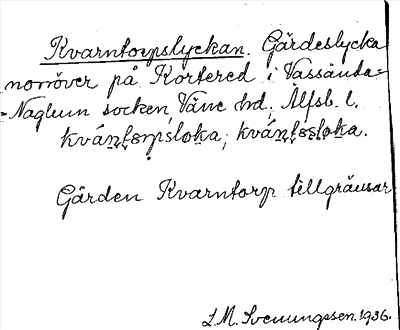 Kvarntorpslyckan. Gärdeslycka
norröver på Kortered i Vassända-
-Naglum socken, Väne hd, Älfsb. l.
kvántorpsloka; kvántosloka.
Gården Kvarntorp tillgränsar
L.M. Svenungssen. 1936.